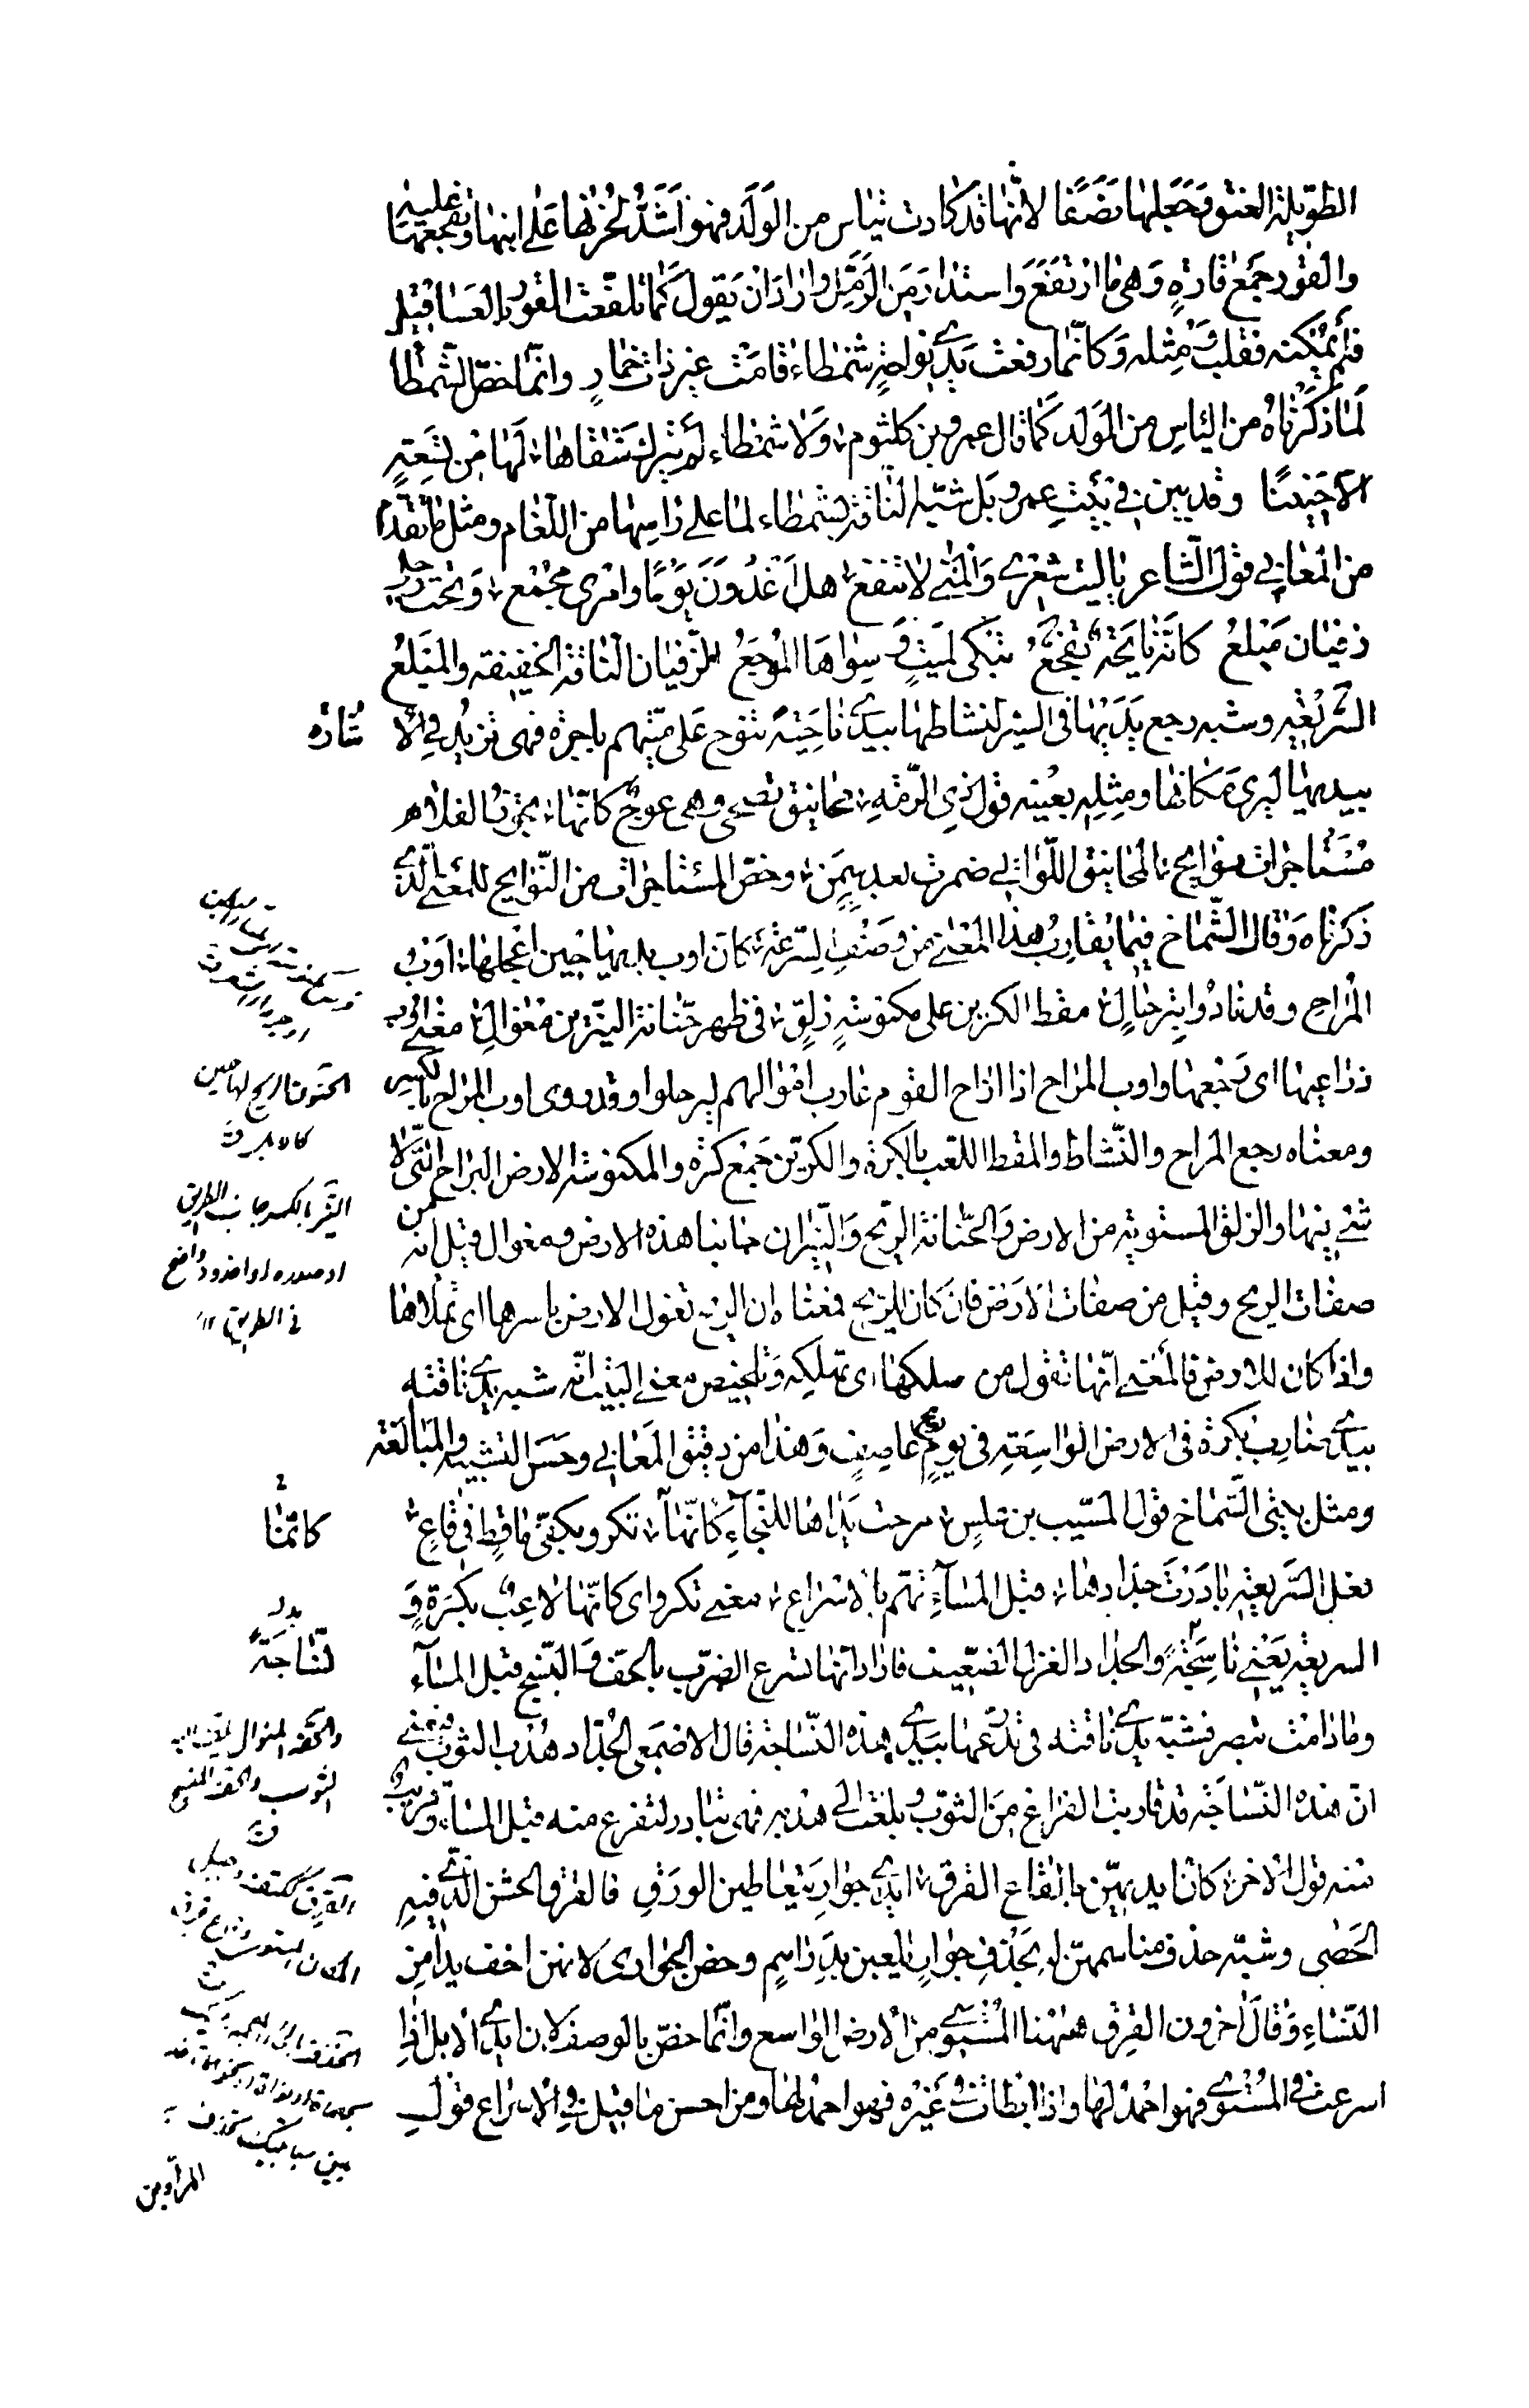 الطويلة العنق وجعلها نصفا لانها قد كادت تياس من الولد فهو اشد لحزنها على ابنها وتفجعها عليه
والقور جمع قارة وهي ما ارتفع واستدار من الرمل واراد ان يقول كما تلفعت القور بالعساقيل
فلم يمكنه فقلب ومثله وكانما رفعت يدي نواحة شمطاء قامت غير ذات خمار وانما خص الشمطا
لما ذكرناه من الياس من الولد كما قال عمرو بن كلثوم ولا شمطاء لم يترك شقاها لها من تسعة
الا جنينا وقد يبين في بيت عمرو بل شبه الناقة بشمطاء لما على راسها من اللغام ومثل ما تقدم
من المعاني قول الشاعر يا ليت شعري والمنى لا تنفع هل اغدون يوما وامري مجمع وتحت رحلي
زفيان ميلع كانها نايحة تفجع تبكي لميت وسواها الموجع الزفيان الناقة الخفيفة والميلع
السريعة وشبه رجع يديها في السير لنشاطها بيدي نايحة تنوح على ميتهم باجرة فهي تزيد في الا شارة
بيديها ليرى مكانها ومثله بعينه قول ذي الرمة مجانيق تضحي وهي عوج كانها بجوز الفلاه
مستاجرات نوايح المجانيق اللواتي ضمرت بعد سمن وخص المستاجرات من النوايح للمعنى الذي
ذكرناه وقال الشماخ فيما يقارب هذا المعنى من وصف السرعة كان اوب يديها حين اعجلها اوب
المراح وقد نادوا بترحال مقط الكرين على مكنوسة زلق في ظهر حنانة النيرين مغوال معنى اوب
ذراعيها اي رجعها واوب المراح اذا اراح القوم عازب اموالهم ليرحلوا وقد روى اوب المراح بالكسر
ومعناه رجع المراح والنشاط والمقط اللعب بالكرة والكرين جمع كرة والمكنوسة الارض البراح التي لا
شيء فيها والزلق المستوية من الارض والحنانة الريح والنيران جانبا هذه الارض ومغوال قيل انه من
صفات الريح وقيل من صفات الارض فان كان للريح فمعناه ان الريح تغول الارض باسرها اي تملاها
واذا كان للارض فالمعنى انها تغول من سلكها اي تهلكه وتلخيص معنى البيت انه شبه يدي ناقته
بيدي ضارب بكرة في الارض الواسعة في يوم ريح عاصف وهذا من دقيق المعاني وحسن التشبيه والمبالغة
ومثل بيتي الشماخ قول المسيب بن علس مرحت يداها للنجاء كانما تكرو بكفي ماقط في قاع
كانما
فعل السريعة بادرت جدادها قبل المساء تهم بالاسراع معنى تكرو اي كانها لاعب بكرة و
السريعة يعني ناسجة والجداد الغزل الضعيف فاراد انها تسرع الضرب بالحف والنسج قبل المساء
نساجة
وما دامت تبصر فشبه يدي ناقته في تذرعها بيدي هذه النساجة قال الاصمعي الجداد هدب الثوب فمعنى
ان هذه النساجة قد قاربت الفراغ من الثوب وبلغت الى هدبه فهي تبادر لتفرغ منه قبل المساء وقريب
منه قول الاخر كان ايديهن بالقاع القرق ايدي جوار يتعاطين الورق فالقرق الخشن الذي فيه
الحصى وشبه حذف مناسمهن له بحذف جوار يلعبن بدراهم وخص الجواري لانهن اخف يدا من
النساء وقال اخرون القرق ههنا المستوي من الارض الواسع وانما خص بالوصف لان ايدي الابل اذا
اسرعت في المستوي فهو احمد لها واذا ابطات في غيره فهو احمد لها ومن احسن ما قيل في الاسراع قول
المرار بن